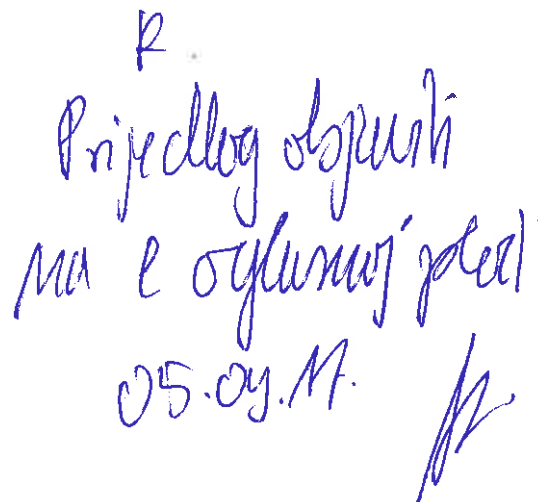 R.
Prijedlog objaviti
na e oglasnoj ploči
05.09.17.